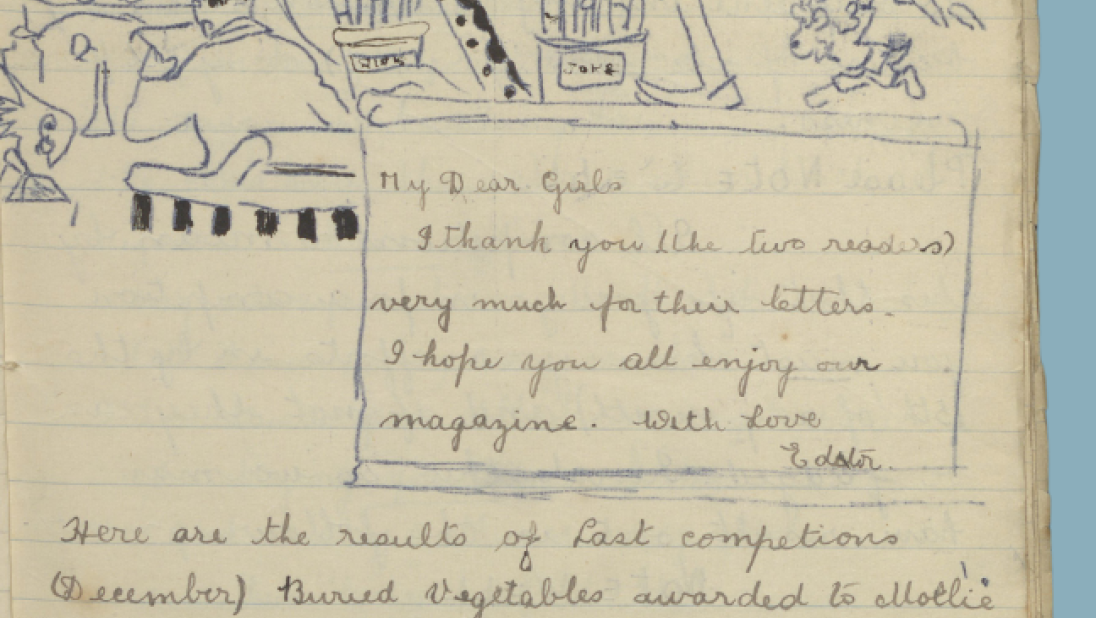 JOKE
My Dear Girls
I thank you (the two readers)
very much for their letters.
I hope you all enjoy our
magazine. With Love
Editor.
Here are the results of Last competions
(December) Buried Vegetables awarded to Mollie